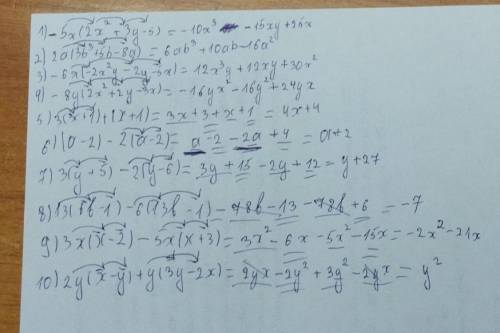 1) -5x(2x² + 3y - 5) = -10x³ - 15xy + 25x
2) 2a(3b³ + 5b - 8a) = 6ab³ + 10ab - 16a²
3) -6x(-2x²y - 2y - 5x) = 12x³y + 12xy + 30x²
4) -8y(2x² + 2y - 3x) = -16yx² - 16y² + 24yx
5) 3(x+1) + (x+1) = 3x + 3 + x + 1 = 4x + 4
6) (a - 2) - 2(a - 2) = a - 2 - 2a + 4 = a + 2
7) 3(y + 5) - 2(y - 6) = 3y + 15 - 2y + 12 = y + 27
8) 13(6b - 1) - 6(13b - 1) - 78b - 13 - 78b + 6 = -7
9) 3x(x - 2) - 5x(x + 3) = 3x² - 6x - 5x² - 15x = -2x² - 21x
10) 2y(x - y) + y(3y - 2x) = 2yx - 2y² + 3y² - 2yx = y²